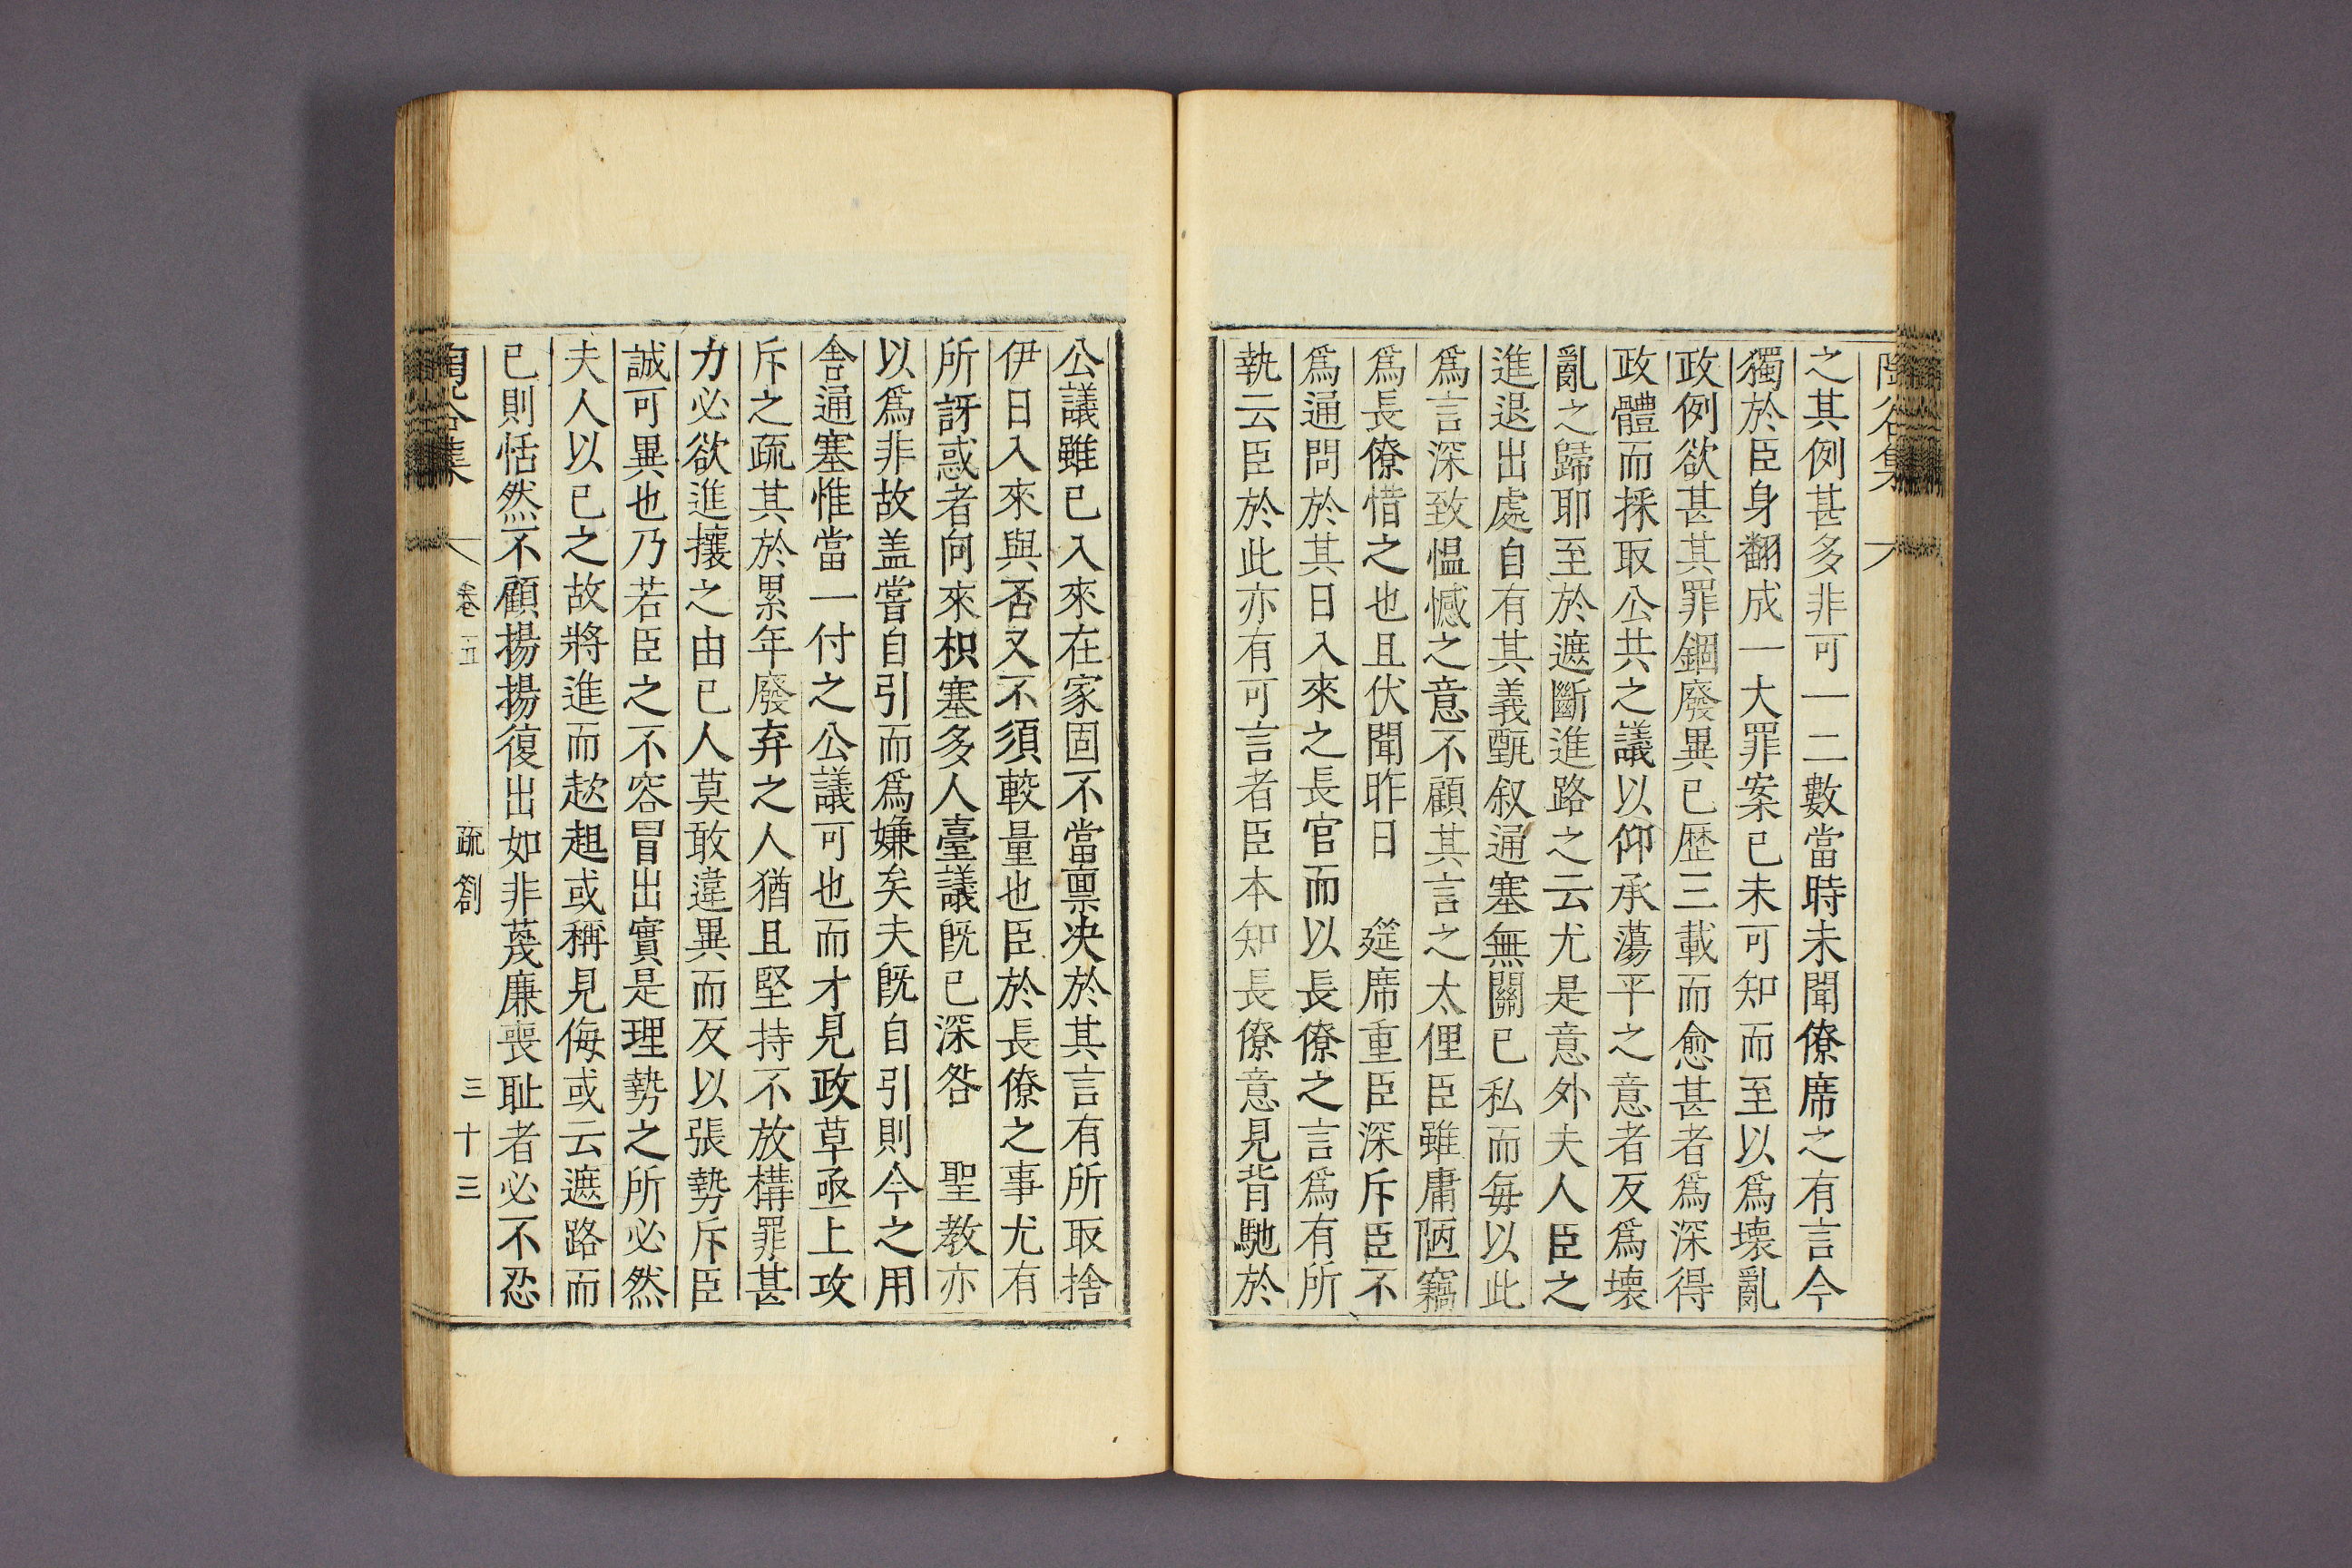 之其例甚多非可一二數當時未聞僚席之有言今
獨於臣身翻成一大罪案已未可知而至以爲壞亂
政例欲甚其罪錮廢異已歴三載而愈甚者爲深得
政體而採取公共之議以仰承蕩平之意者反爲壞
亂之歸耶至於遮斷進路之云尤是意外夫人臣之
進退出處自有其義甄叙通塞無關已私而每以此
爲言深致慍憾之意不顧其言之太俚臣雖庸陋竊
爲長僚惜之也且伏聞昨日 筵席重臣深斥臣不
爲通問於其日入來之長官而以長僚之言爲有所
執云臣於此亦有可言者臣本知長僚意見背馳於
公議雖已入來在家固不當禀决於其言有所取捨
伊日入來與否又不須較量也臣於長僚之事尤有
所訝惑者向來枳塞多人臺議旣已深咎 聖教亦
以爲非故盖嘗自引而爲嫌矣夫旣自引則今之用
舍通塞惟當一付之公議可也而才見政草亟上攻
斥之疏其於累年廢弃之人猶且堅持不放構罪甚
力必欲進攘之由已人莫敢違異而反以張勢斥臣
誠可異也乃若臣之不容冒出實是理勢之所必然
夫人以已之故將進而趑趄或稱見侮或云遮路而
已則恬然不顧揚揚復出如非蔑廉喪耻者必不忍
谷集 卷五 疏劄 三十三